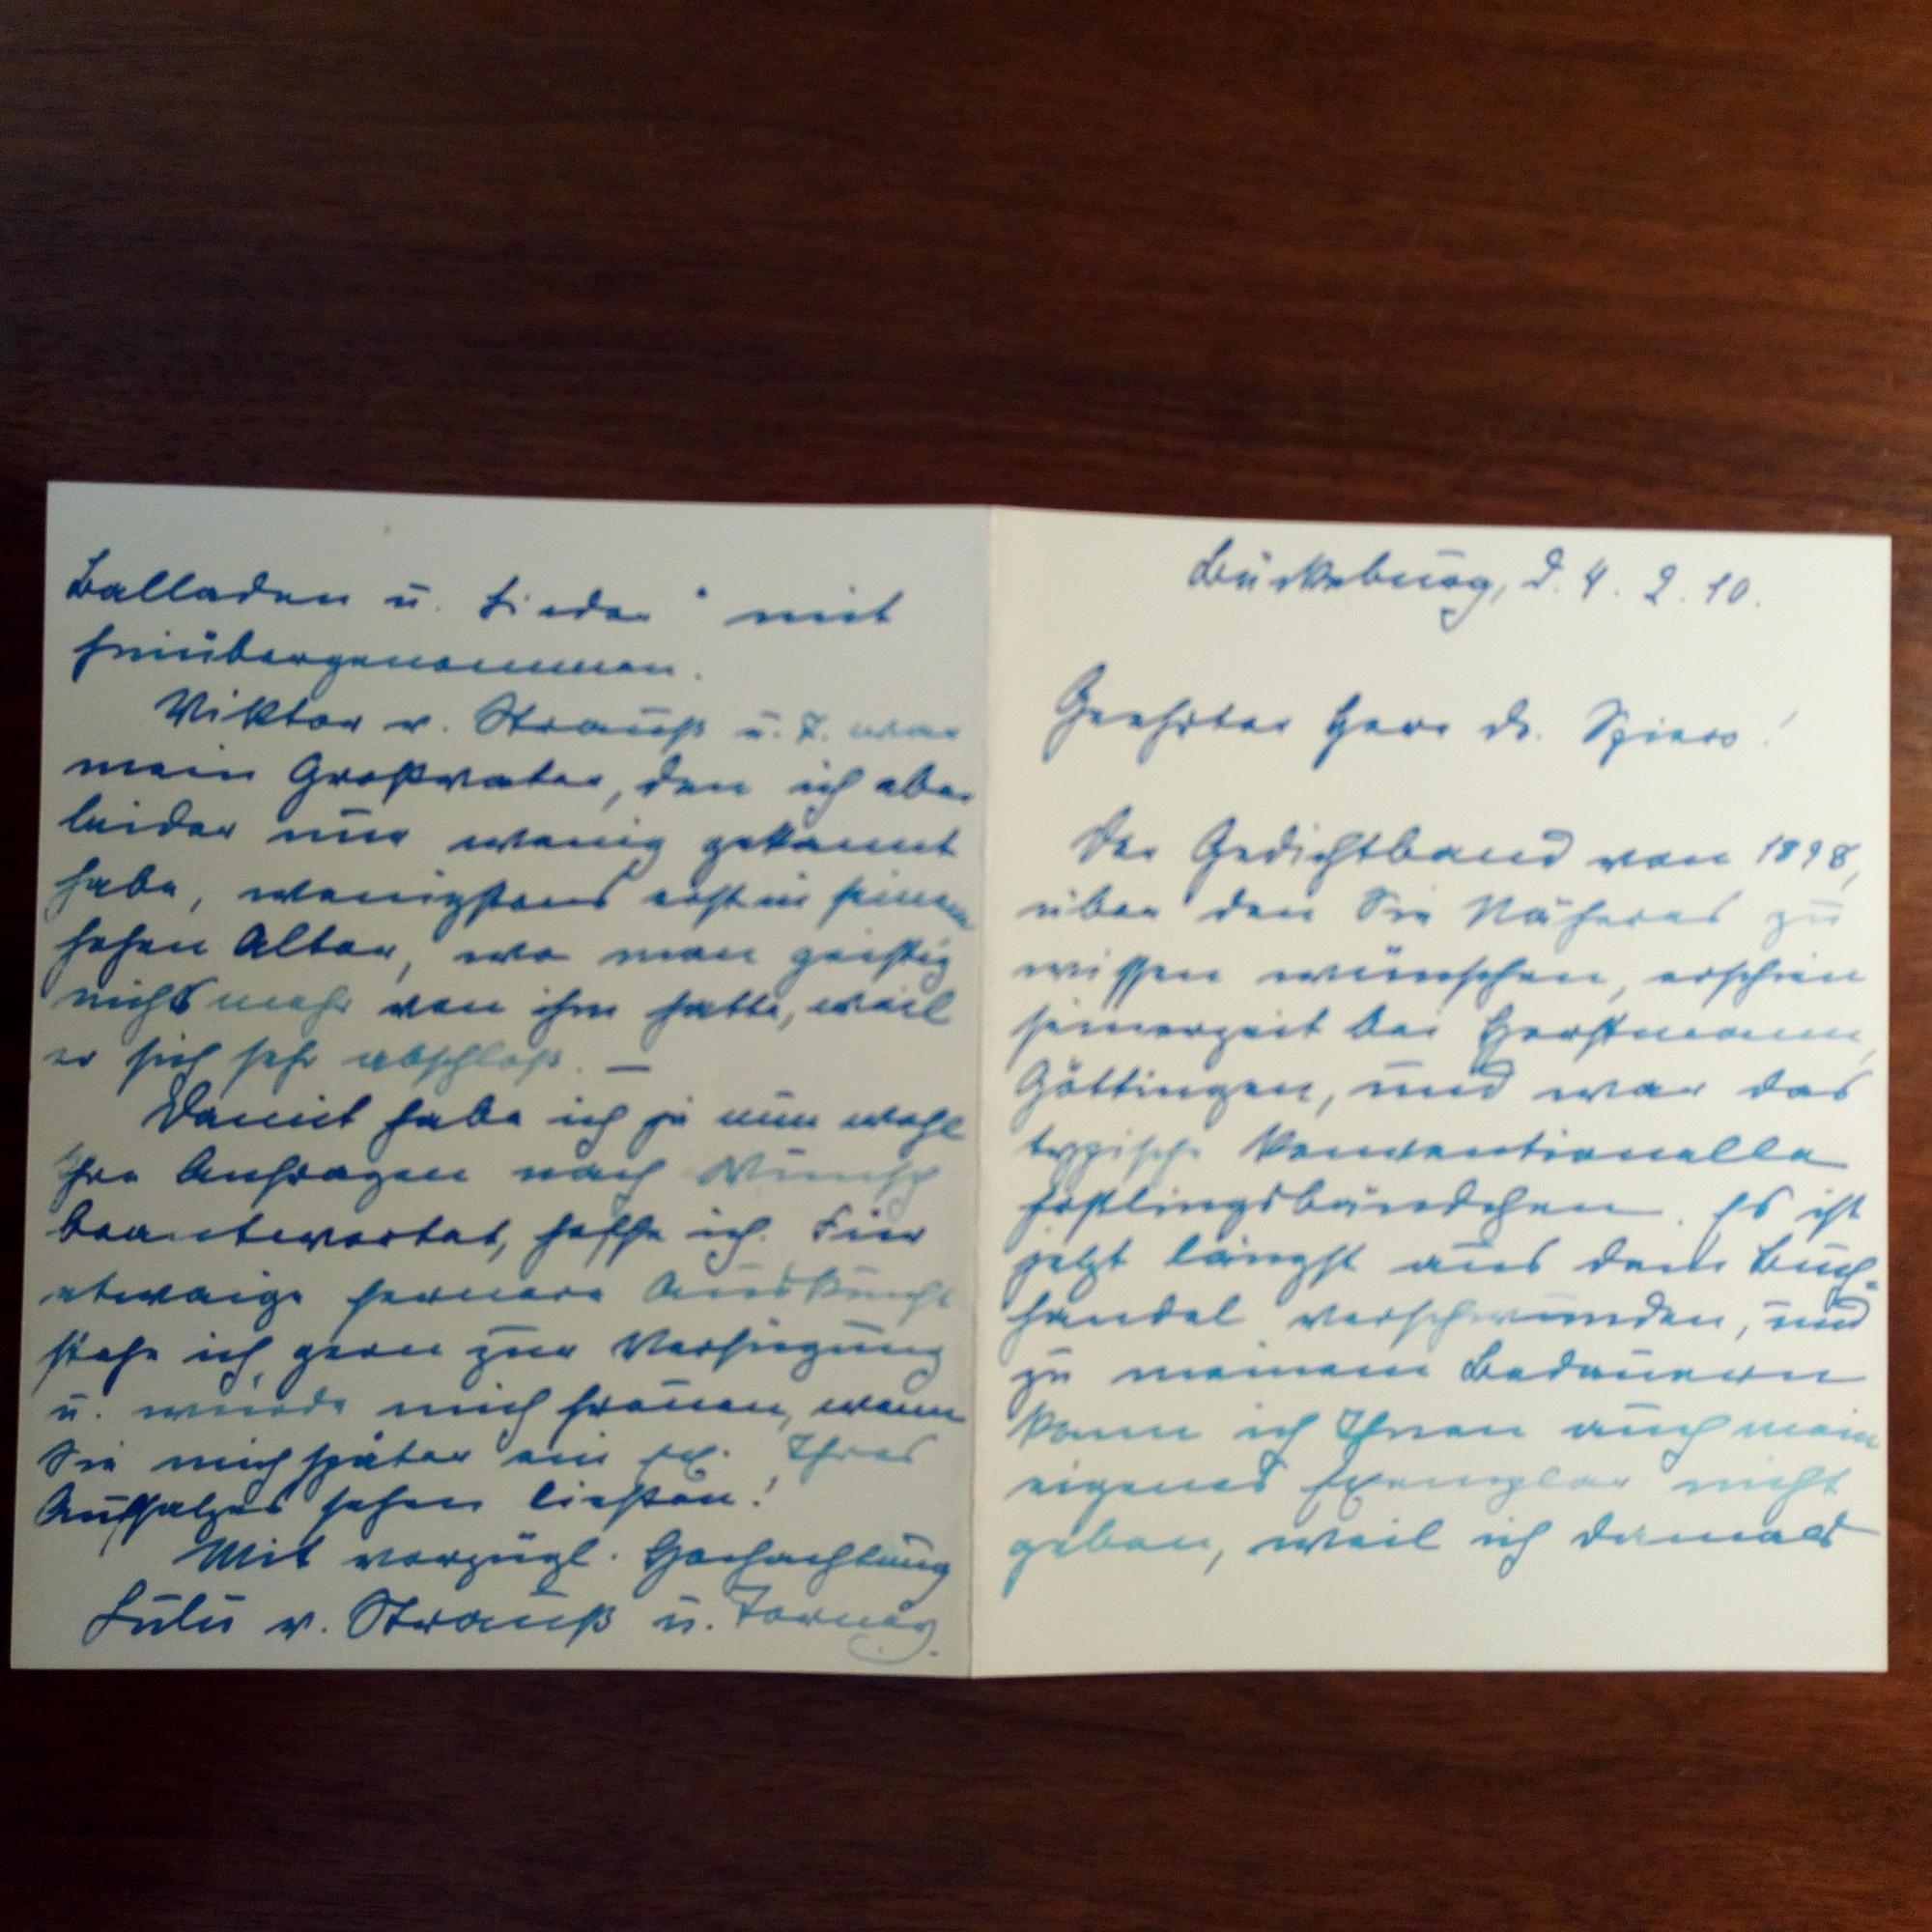 Bückeburg, d. 4. 2. 10.
Geehrter Herr Dr. Spiero!
Der Gedichtband von 1898,
über den Sie Näheres zu
wissen wünschen, erschien
seinerzeit bei Horstmann,
Göttingen, und war das
typische konventionelle
Erstlingsbändchen. Es ist
jetzt längst aus dem Buch-
handel verschwunden, und
zu meinem Bedauern
kann ich Ihnen auch mein
eigenes Exemplar nicht
geben, weil ich damals
Balladen u. Lieder" mit
hinübergenommen.
Viktor v. Strauß u. T. war
mein Großvater, den ich aber
leider nur wenig gekannt
habe, wenigstens erst in seinem
hohen Alter, wo man geistig
nichts mehr von ihm hatte, weil
er sich sehr abschloß. —
Damit habe ich ja nun wohl
Ihre Anfragen nach Wunsch
beantwortet, hoffe ich. Für
etwaige fernere Auskunft
stehe ich gern zur Verfügung
u. würde mich freuen, wenn
Sie mich später ein Ex. Ihres
Aufsatzes sehen ließen!
Mit vorzügl. Hochachtung
Lulu v. Strauß u. Torney.